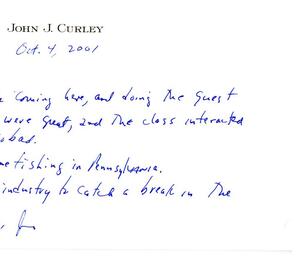 JOHN J. CURLEY
Oct. 4, 2001
coming here, and doing the guest
were great, and the class interacted
fishing in Pennsylvania.
industry to catch a break in the